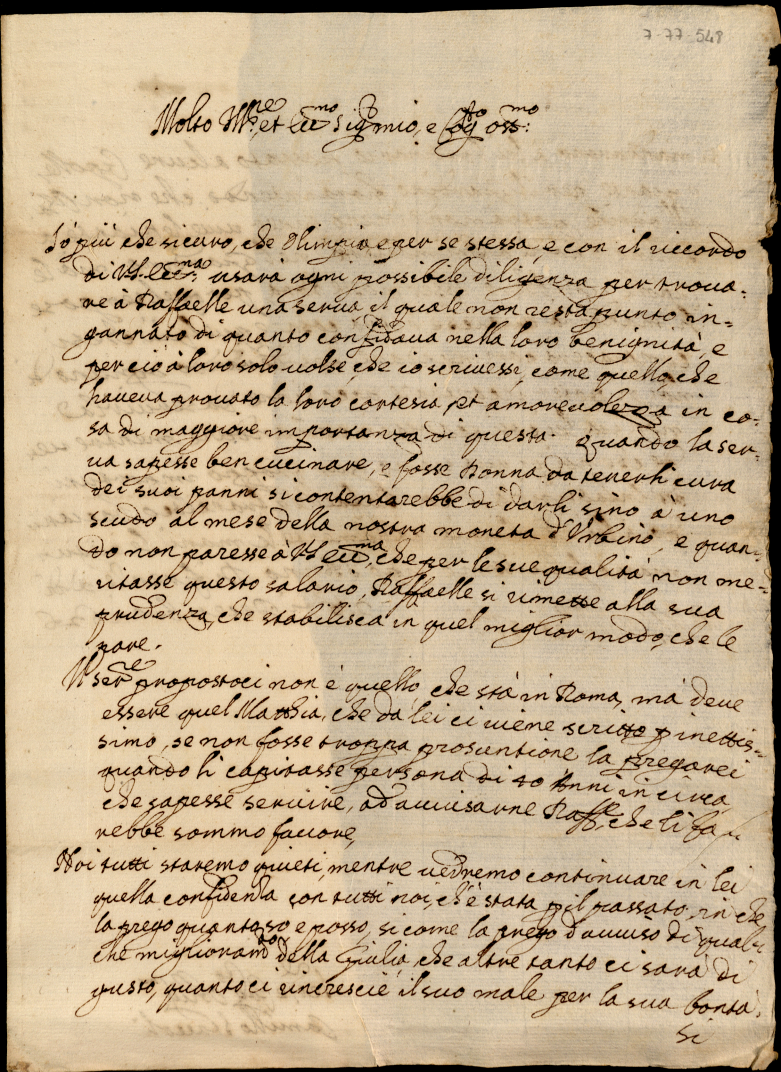 7-77-548
Molto Ill.re et ecc.mo Sig.r mio, e Cog.to oss.mo:
Io più che sicuro, che Olimpia e per se stessa, e con il riccordo
di V.S. ecc.ma usarà ogni possibile diligenza per troua=
re à Raffaelle una serua, il quale non resta punto in=
gannato di quanto confidaua nella loro benignità, e
perciò à loro solo uolse, che io scriuessi, come quello, che
haueua prouato la loro cortesia, et amoreuolezza in co=
sa di maggiore importanza di questa. Quando la ser=
ua sapesse ben cucinare, e fosse Donna da tenerli cura
dei suoi panni si contentarebbe di darli sino à uno
scudo al mese della nostra moneta d'Vrbino, e quan=
do non paresse à V.S. ecc.ma, che per le sue qualità non me=
ritasse questo salario, Raffaelle si rimette alla sua
prudenza, che stabilisca in quel miglior modo, che le
pare.
Il ser.re propostoci non è quello, che stà in Roma, mà deue
essere quel Matthia, che dà lei ci uiene scritto p inettis=
simo, se non fosse troppa prosuntione la pregarei
quando li capitasse persona di 40 Anni in circa,
che sapesse seruire, ad auuisarne Raff.le, che li fa
rebbe sommo fauore,
Noi tutti staremo quieti, mentre uedremo continuare in lei
quella confidenza con tutti noi, ch'è stata p il passato, in che
la prego quanto so e posso, si come la prego d'auuiso di qual
che miglioram.to della Giulia, che altre tanto ci sarà di
gusto, quanto ci rincresciè il suo male per la sua bontà.
Si